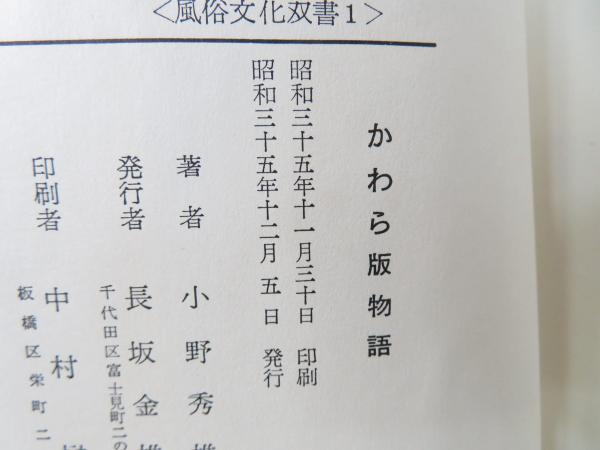 <風俗文化双書1>
かわら版物語
昭和三十五年十一月三十日 印刷
昭和三十五年十二月 五日 発行
著者 小野秀雄
発行者 長坂金雄
千代田区富士見町二の
印刷者 中村
板橋区栄町二